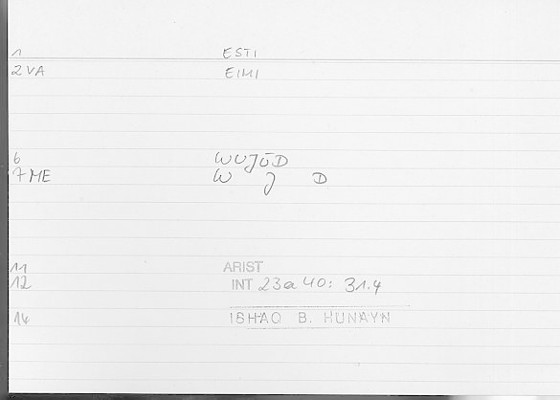 1 ESTI
2 VA EIMI
6 WUJŪD
7 ME W J D
11 ARIST
12 INT 23a40: 31.4
14 ISHAQ B. HUNAYN